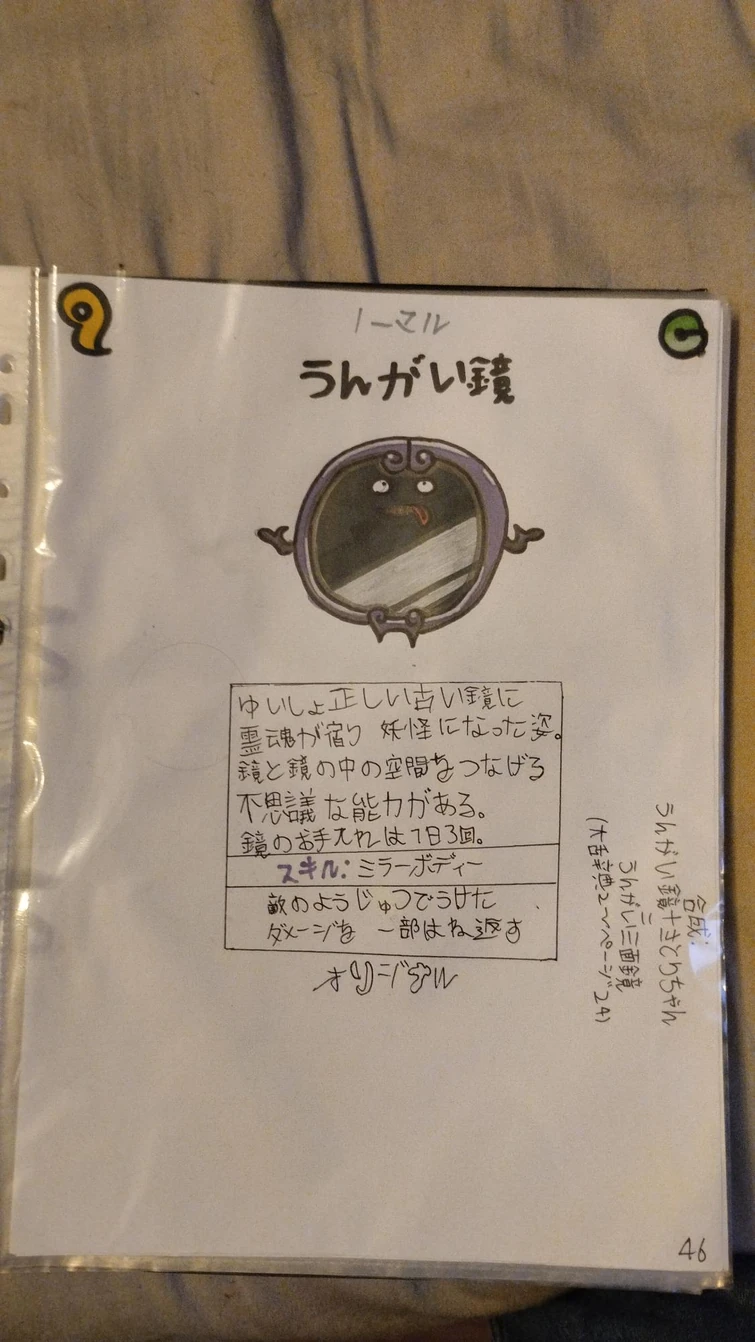 ノーマル
うんがい鏡
ゆいしょ正しい古い鏡に
霊魂が宿り 妖怪になった姿。
鏡と鏡の中の空間をつなげる
不思議な能力がある。
鏡のお手入れは1日3回。
スキル:ミラーボディー
敵のようじゅつでうけた
ダメージを 一部はね返す
オリジナル
合成:
うんがい鏡+さとりちゃん
=
うんがい三面鏡
(大辞典2〜ページ24)
46